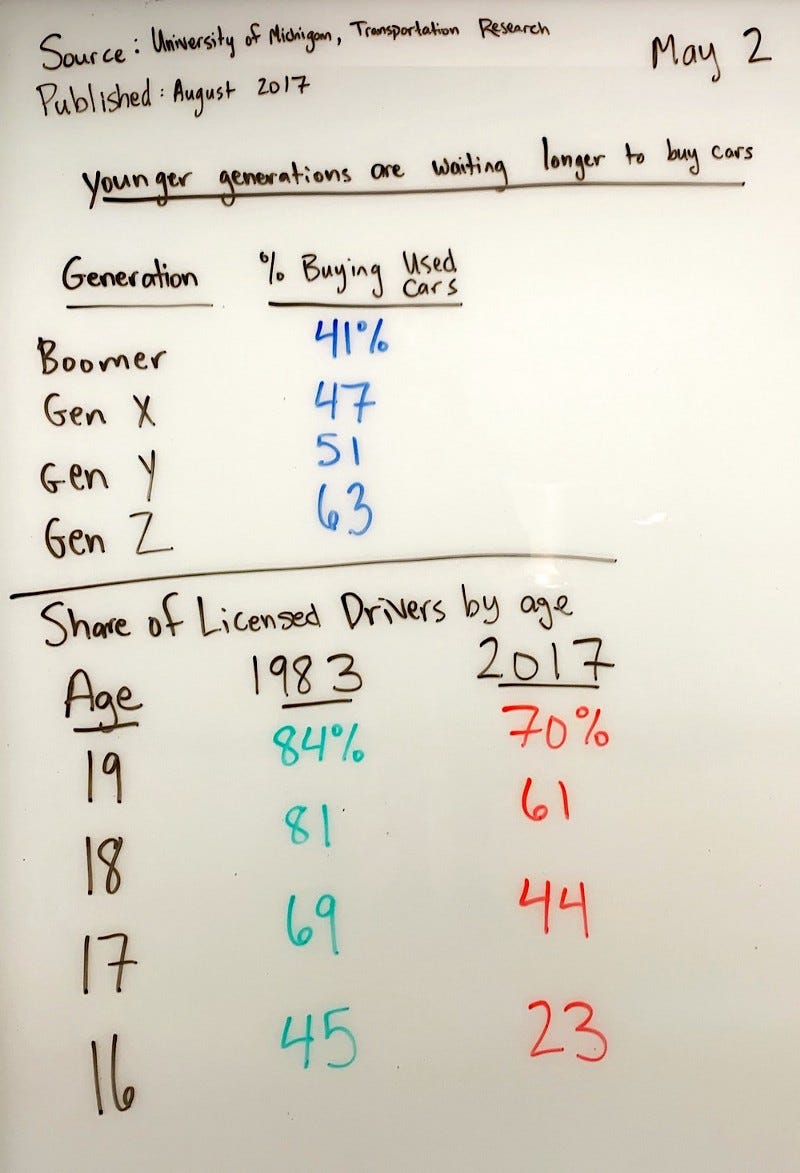 Source: University of Michigan, Transportation Research
May 2
Published: August 2017
Younger generations are waiting longer to buy cars
Generation % Buying Used Cars
Boomer 41%
Gen X 47
Gen Y 51
Gen Z 63
Share of Licensed Drivers by age
Age 1983 2017
19 84% 70%
18 81 61
17 69 44
16 45 23